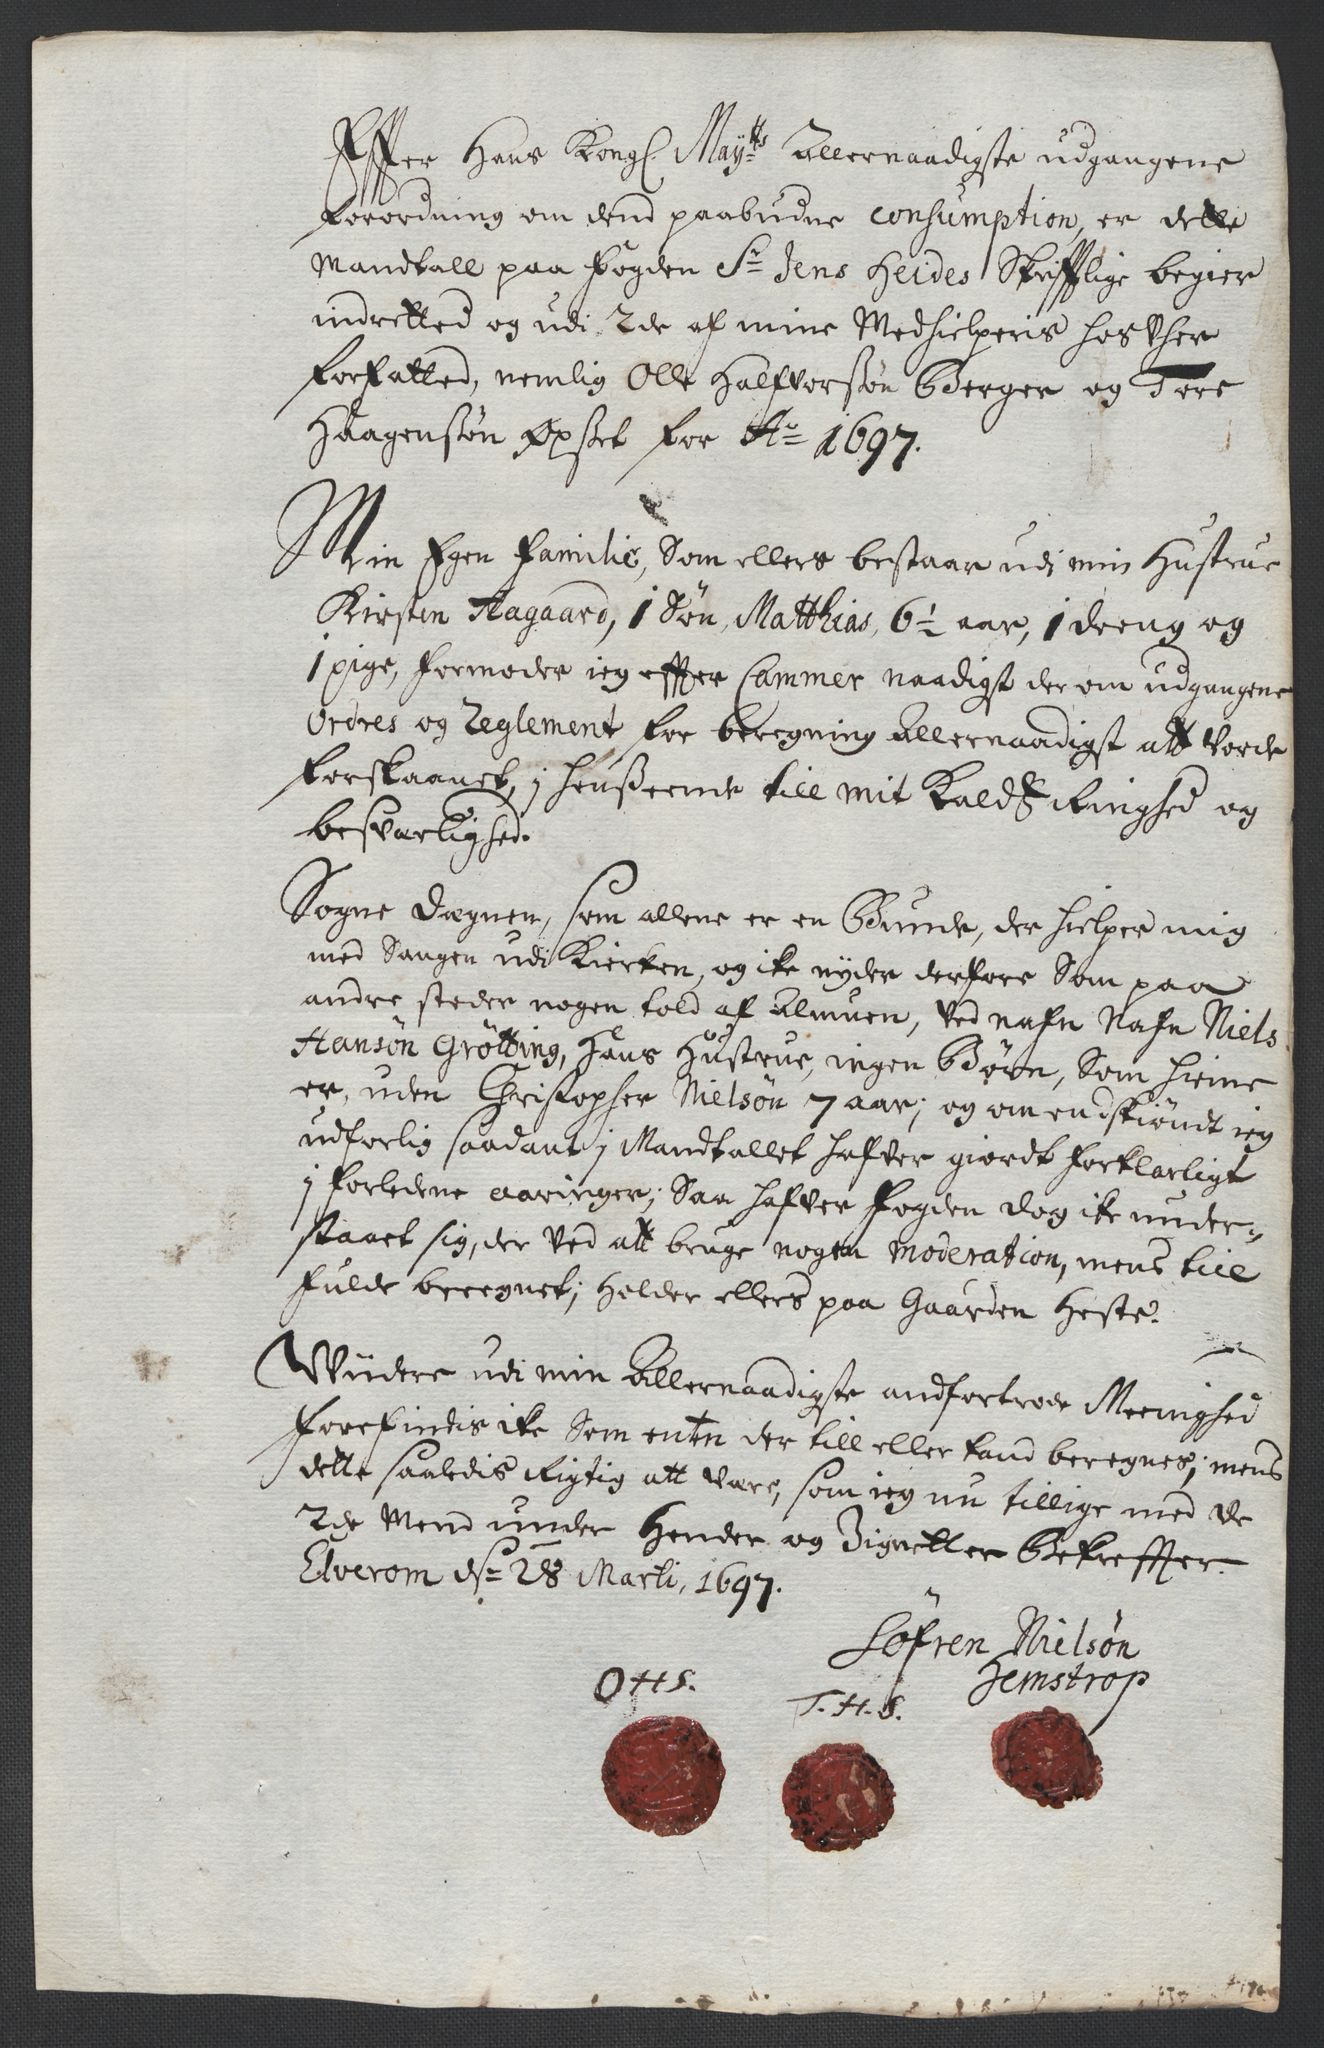 Effter Hans Kongl. Maytts Allernaadigste udgangene
forordning om dend paabudne Consumption, er dette
Mandtall paa fogden Sr Jens Heides Skrifftlige begier
indretted og udi 2de af mine Medhielperis hos
forfatted, nemlig Olle Halfvorsøn Berger og Tore
Haagensøn Opset for Ao 1697.
Min Egen Familie, Som ellers bestaar udi min Hustrue
Kirsten Aagaard, 1 Søn, Matthias, 6½ aar, 1 dreng og
1 pige, formoder ieg effter Cammer naadigst der om udgangene
Ordres og Reglement for beregning allernaadigst att vorde
forskaanet, j henseende till mit Kalds Ringhed og
besværlighed.
Sogne Degnen, som allene er en Bunde, der hielper mig
med Sangen udi Kierken, og ike nyder derfore Som paa
andre steder nogen told af Almuen, ved nafn Nafn Niels
Hansøn Grøtting, Hans Hustrue, ingen Børn, Som hieme
er, uden Christopher Nielsøn 7 aar; og omendskiøndt ieg
udforlig saadant j Mandtallet hafver giordt forklarligt
j forledene aaringer; Saa hafver fogden dog ike under-
staaet sig, der ved att bruge nogen Moderation, mens till
fulde beregnet; Holder ellers paa Gaarden Heste.
Widere udi min Allernaadigste andfortrode Meenighed
forefindis ike Som enten der till eller kand beregnes; mens
dette saaledis Rigtig att være, som ieg nu tillige med de
2de Mend under Hender og Zignetter Bekreffter.
Elverom ds 28 Marti, 1697.
Søfren Nielsøn
Hemstrop
OHS.
T.H.S.